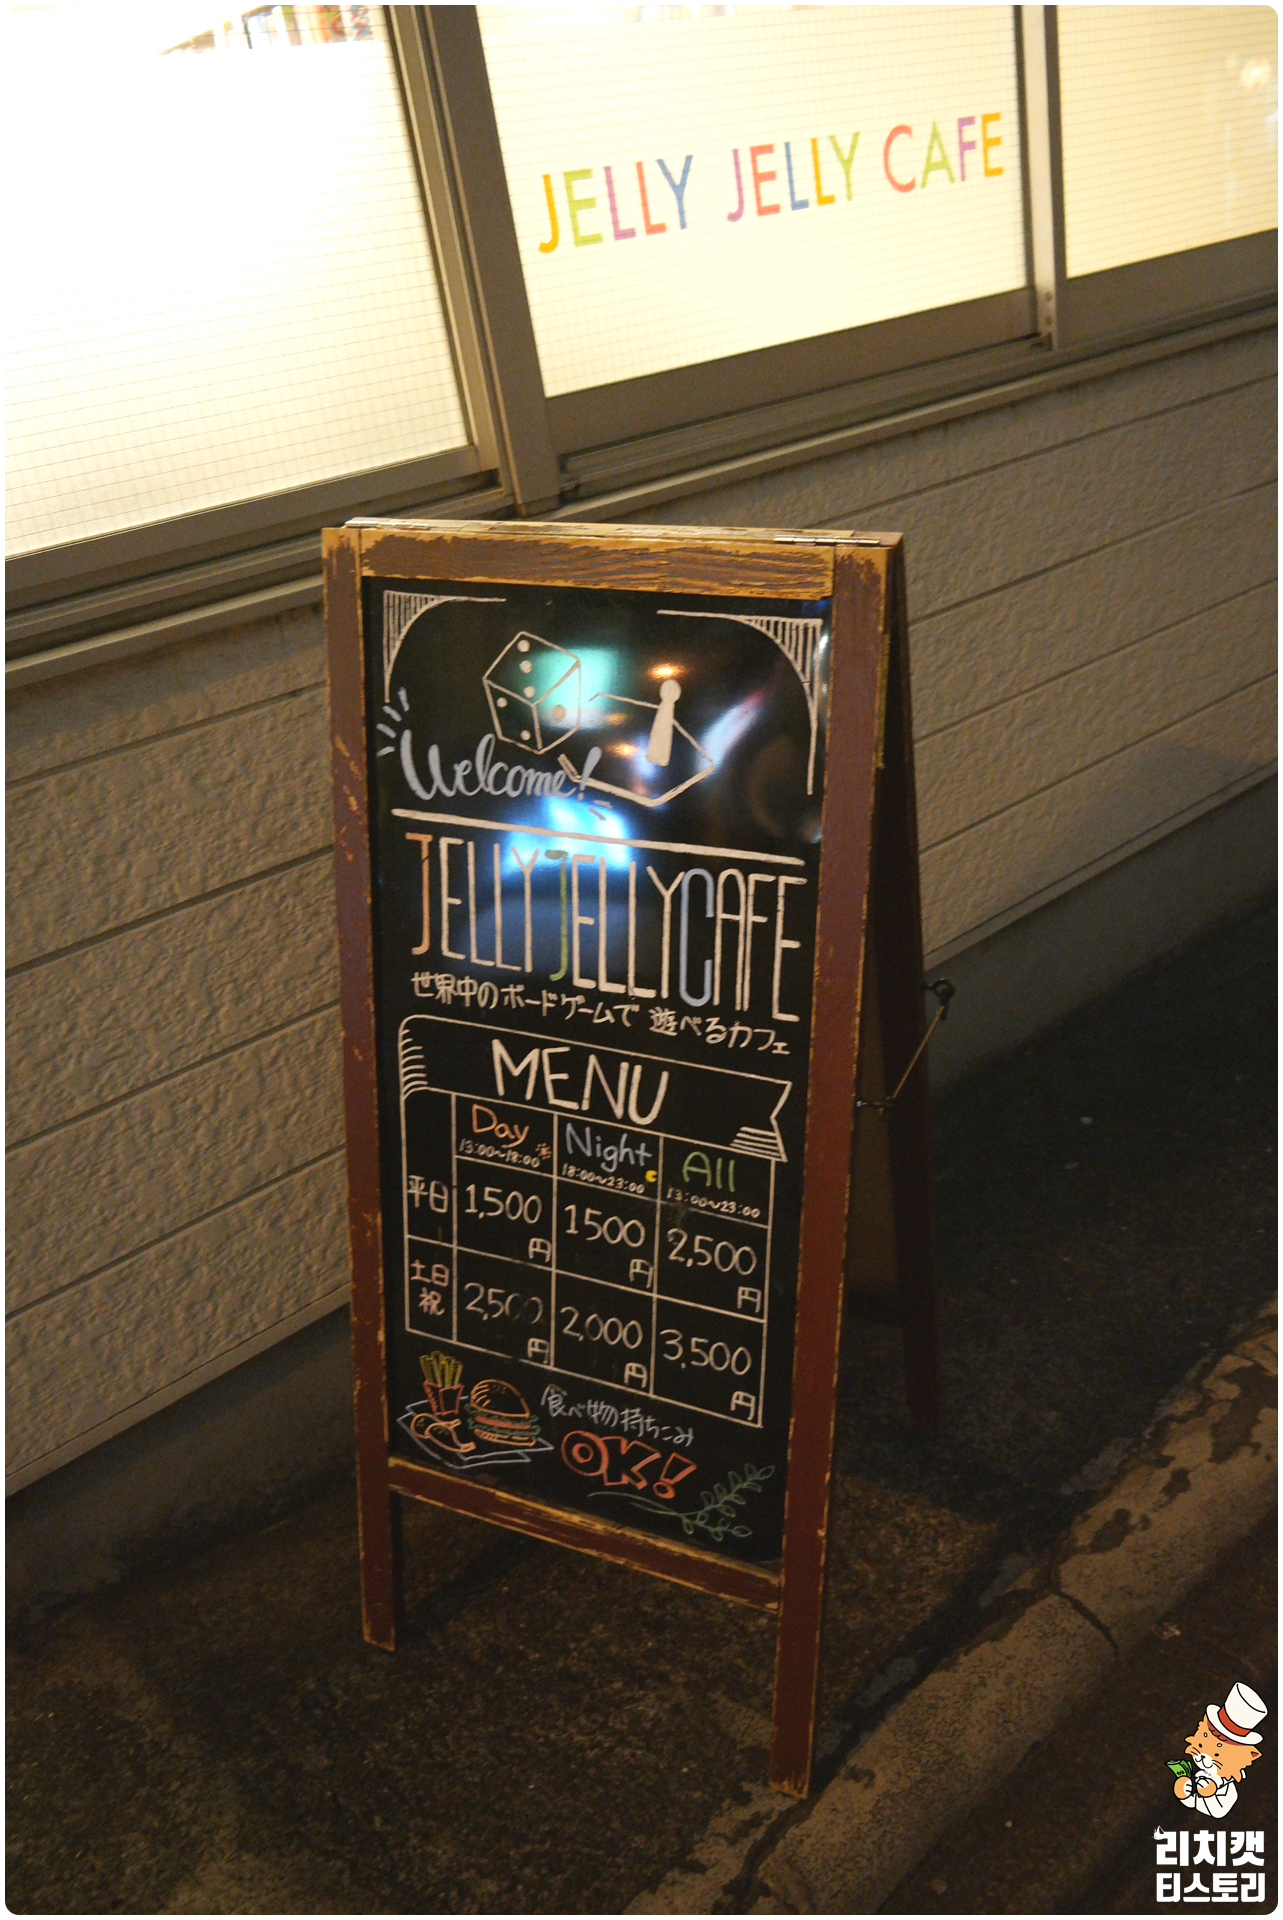 JELLY JELLY CAFE
Welcome!
JELLYJELLYCAFE
世界中のボードゲームで 遊べるカフェ
MENU
Day
13:00~18:00
Night
18:00~23:00
All
13:00~23:00
平日
1,500円
1500円
2,500円
土日祝
2,500円
2,000円
3,500円
食べ物持ちこみ
OK!
리치캣
티스토리